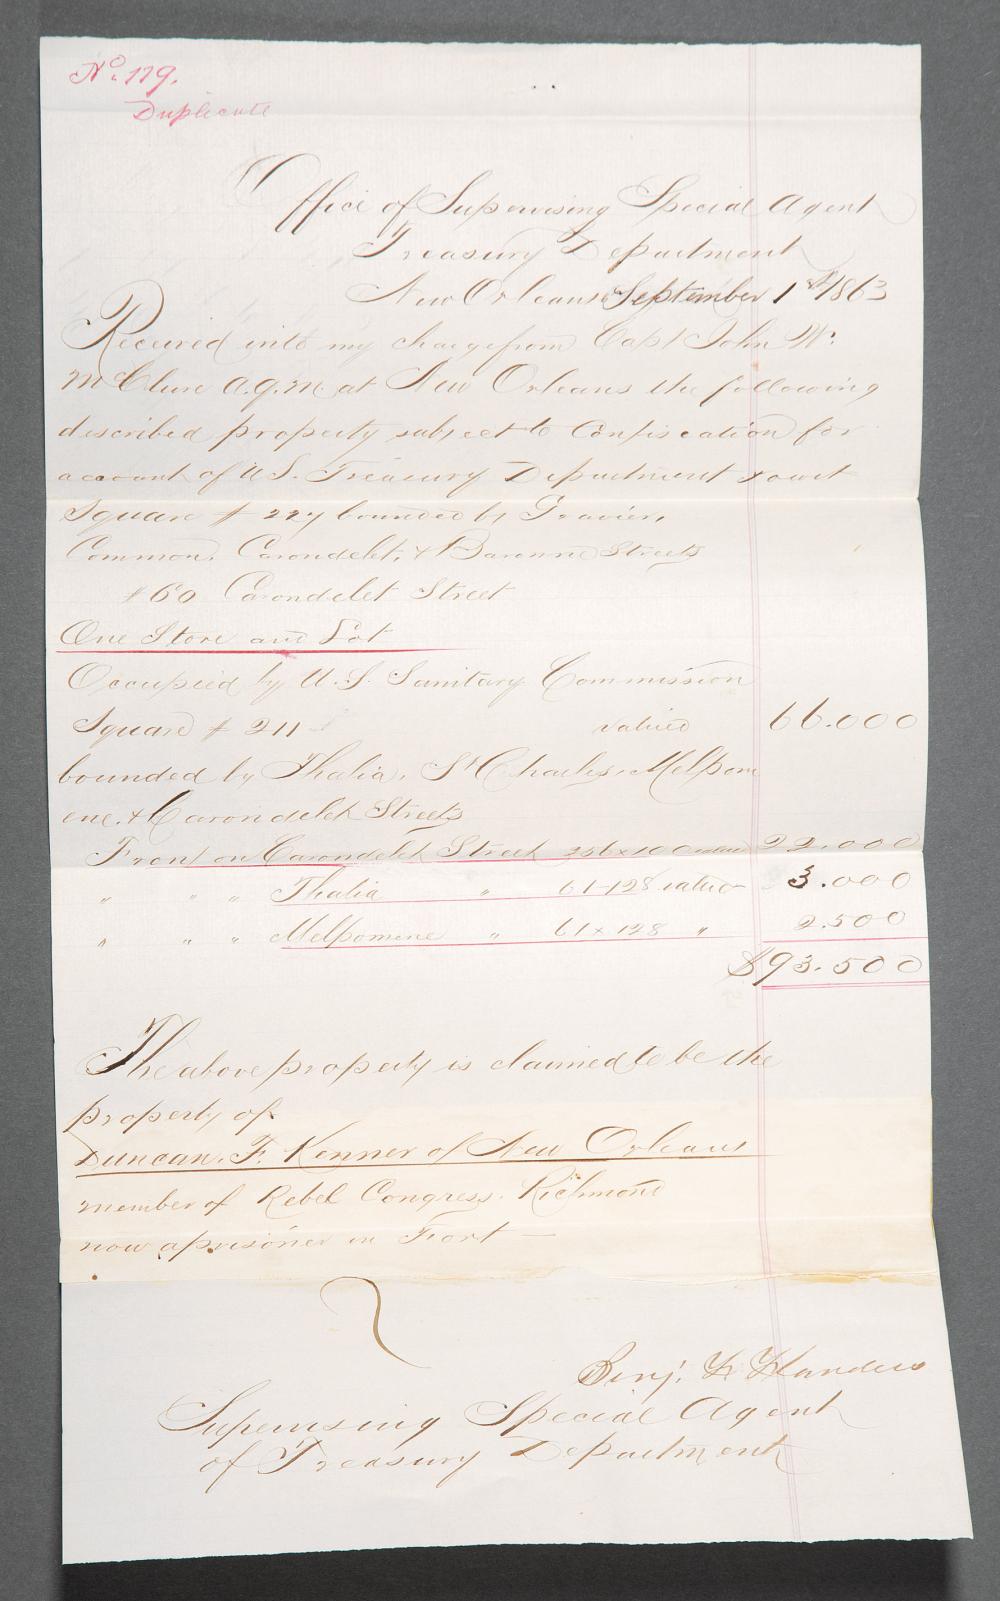 No. 179.
Duplicate
Office of Supervising Special Agent
Treasury Department
New Orleans September 1st 1863
Received into my charge from Capt John W.
McClure A.Q.M. at New Orleans the following
described property subject to Confiscation for
account of U.S. Treasury Department to wit
Square # 227 bounded by Gravier,
Common, Carondelet, & Baronne Streets
# 60 Carondelet Street
One Store and Lot
Occupied by U.S. Sanitary Commission
Square # 211 valued 66.000
bounded by Thalia, St Charles, Melpom
ene, & Carondelet Streets
Front on Carondelet Street 256x100 value 22.000
" " " Thalia " 61-128 value 3.000
" " " Melpomene " 61x128 " 2.500
$93.500
The above property is claimed to be the
property of
Duncan. F. Kenner of New Orleans
member of Rebel Congress. Richmond
now a prisoner in Fort —
Benj. F. Flanders
Supervising Special Agent
of Treasury Department